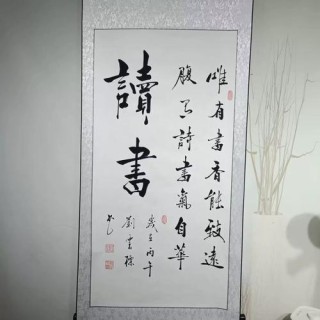 唯有書香能致遠
腹有詩書氣自華
讀書
歲在丙午
劉雲
書